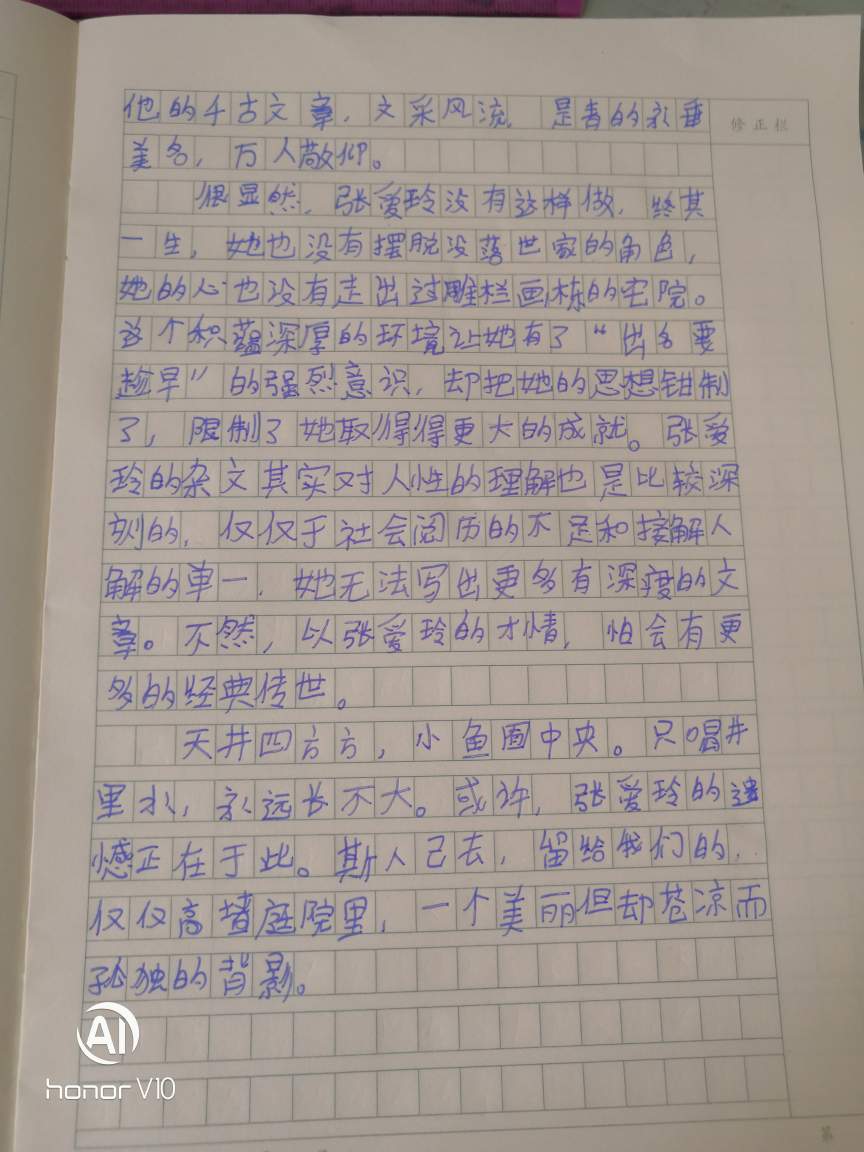 他的千古文章，文采风流，是青的永垂
修正栏
美名，万人敬仰。
很显然，张爱玲没有这样做，终其
一生，她也没有摆脱没落世家的角色，
她的心也没有走出过雕栏画栋的宅院。
这个积蕴深厚的环境让她有了“出名要
趁早”的强烈意识，却把她的思想钳制
了，限制了她取得得更大的成就。张爱
玲的杂文其实对人性的理解也是比较深
刻的，仅仅于社会阅历的不足和接解人
解的单一，她无法写出更多有深度的文
章。不然，以张爱玲的才情，怕会有更
多的经典传世。
天井四方方，小鱼围中央。只唱井
里水，永远长不大。或许，张爱玲的遗
憾正在于此。斯人已去，留给我们的，
仅仅高墙庭院里，一个美丽但却苍凉而
孤独的背影。
AI
honor V10
第